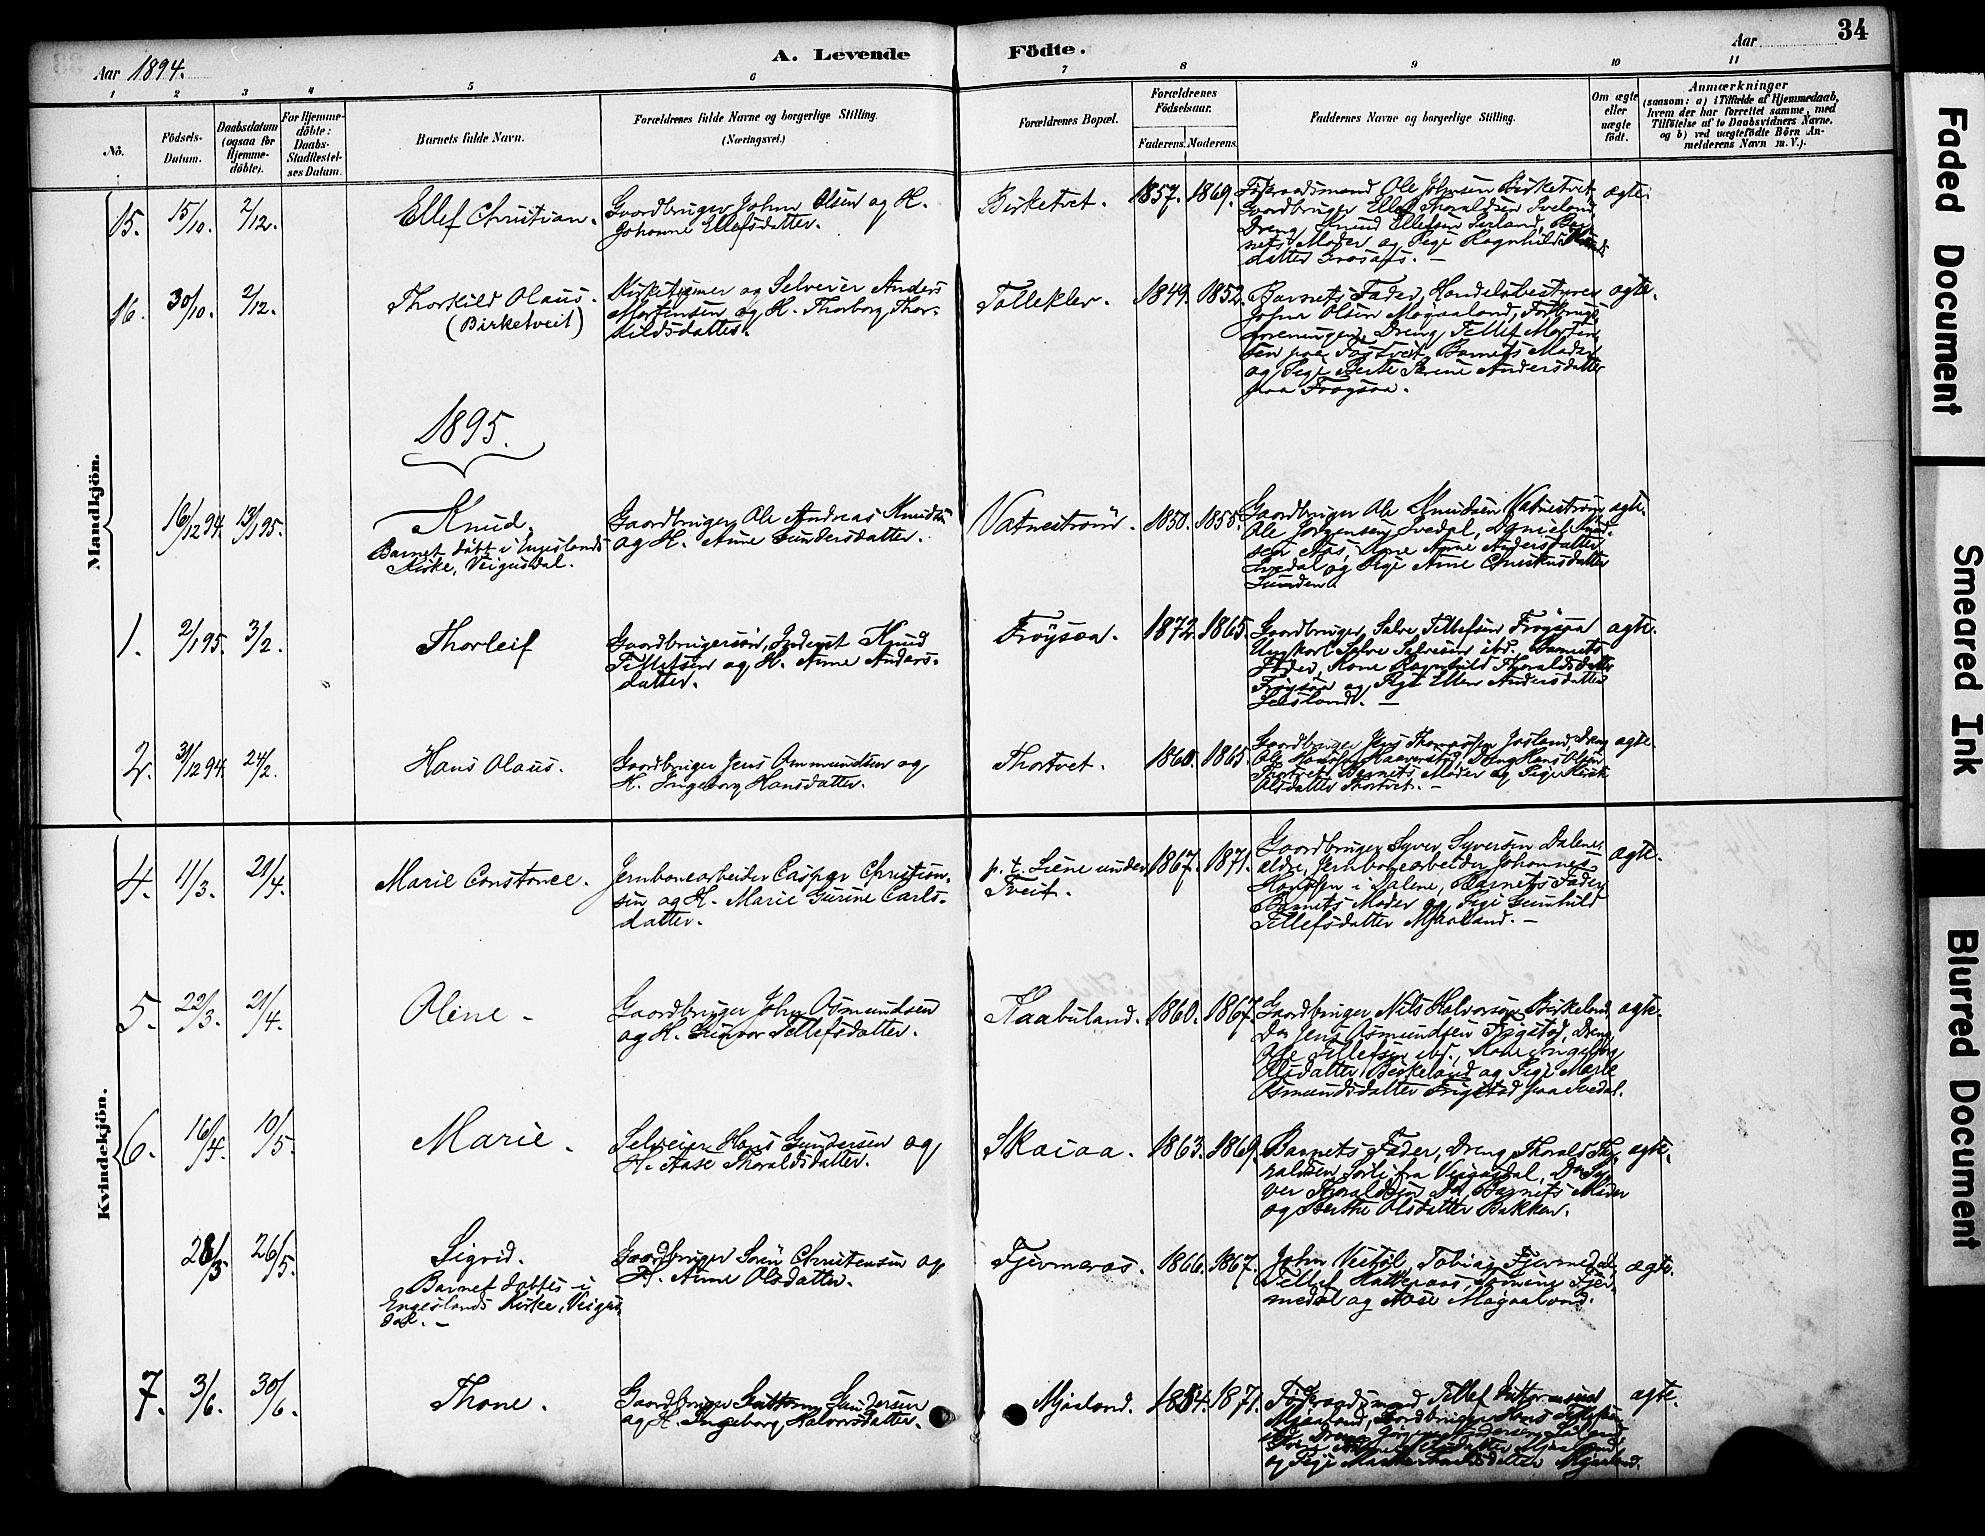 34
Aar 1894.
A. Levende Födte.
Aar
1 2 3 4 5 6 7 8 9 10 11
Nö.
Födsels-Datum.
Daabsdatum (ogsaa for Hjemme-döbte).
For Hjemme-döbte: Daabs-Stadfæstel-ses Datum.
Barnets fulde Navn.
Forældrenes fulde Navne og borgerlige Stilling.
(Næringsvei.)
Forældrenes Bopæl.
Forældrenes Födselsaar.
Faderens. Moderens.
Faddernes Navne og borgerlige Stilling.
Om ægte eller uægte födt.
Anmærkninger
(saasom: a) i Tilfælde af Hjemmedaab, hvem der har forrettet samme, med Tilföielse af to Daabsvidners Navne. og b) ved uægtefödte Börn Anmelderens Navn m. V.).
Mandkjön.
15. 15/10. 2/12. Ellef Christian. Gaardbruger John Olsen og H.
Johanne Ellefsdatter.
Birketvet. 1857. 1869. Föderaadsmand Ole Johnsen Birketvet
Gaardbruger Ellef Thoraldsen Iveland
Dreng Knud Ellefsen
Moder og Pige Ragnhild
datter
ægte.
16. 30/10. 2/12. Thorkild Olaus.
(Birketveit)
Kirketjener og Selveier Anders
Mortensen og H. Thorborg Thor-
kildsdatter.
Tolleklev. 1849. 1852. Barnets Fader, Handelsbestyrer
John Olsen
Dreng Tellef Morten
sen paa Barnets Moder
og Pige Berte Serine Andersdatter
paa Fröysaa.
ægte.
1895.
16/12 94. 13/1 95. Knud.
Barnet döbt i Engeslands
Kirke, Veigusdal.
Gaardbruger Ole Andreas Knudsen
og H. Anne Gundersdatter.
Vatneström. 1850. 1855. Gaardbruger Ole Knudsen Vatneström
Ole Jörgensen Ivedal, Daniel Knud-
sen Aas, Kone Anne Andersdatter
Ivedal og Pige Anne
ægte.
1. 2/1 95. 3/2. Thorleif Gaardbrugersön, Inderst Knud
Tellefsen og H. Anne Anders-
datter.
Fröysaa. 1872. 1865. Gaardbruger Salve Tellefsen Fröysaa
Ungkarl Salve Salvesen ibd. Barnets
Fader, Kone Ragnhild Thoraldsdatter
Fröysaa og Pige Ellen Andersdatter
ægte.
2. 31/12 94. 24/2. Hans Olaus. Gaardbruger Jens Ommundsen og
H. Ingeborg Hansdatter.
Thortvet. 1860. 1865. Gaardbruger Jens Dreng
Ole Hansen Dreng Hans Olsen
Thortvet, Barnets Moder og Pige
Olsdatter Thortvet.
ægte.
Kvindekjön.
4. 11/3. 21/4. Marie Constance. Jernbanearbeider Casper Christian-
sen og H. Marie Gurine Carls-
datter.
p. t. Liene under
Tveit.
1867. 1871. Gaardbruger Syver Syversen Dalene,
eldre, Jernbanearbeider Johannes
Hansen i Dalene, Barnets Fader
Barnets Moder og Pige Gunhild
Tellefsdatter Mjaaland.
ægte.
5. 22/3. 21/4. Oline Gaardbruger John Osmundsen
og H. Gunvor Tellefsdatter.
Kaabuland. 1860. 1867. Gaardbruger Nils Halvorsen Birkeland
Do Jens Osmundsen Frigstad, Dreng
Ole Tellefsen ibd., Kone Ingeborg
Olsdatter Birkeland og Pige Marie
Osmundsdatter Frigstad paa Ivedal.
ægte.
6. 16/4. 10/5. Marie. Selveier Hans Gundersen og
H. Aase Thoraldsdatter.
Skaiaa. 1863. 1869. Barnets Fader, Dreng Thorald Tho-
raldsen fra Veigusdal, Do Sy-
ver Thoraldsen Do, Barnets Moder
og Berthe Olsdatter Bakken.
ægte.
28/3 26/5. Sigrid.
Barnet döbtes i
Engeslands Kirke, Veigus-
dal.
Gaardbruger Sören Christensen og
H. Anne Olsdatter.
Fjermeros. 1866. 1867. John Tobias Fjermedal,
Tellef Hatteraas,
og Aase
ægte.
7. 3/6. 30/6. Thone. Gaardbruger Guttorm Gundersen
og H. Ingeborg Halvorsdatter.
Mjaaland. 1871. Föderaadsmand Tellef Guttormsen
Mjaaland, Gaardbruger Hans Tellefsen
ibd. Dreng
Mjaaland
og Pige Mjaaland.
ægte.
Faded Document
Smeared Ink
Blurred Document